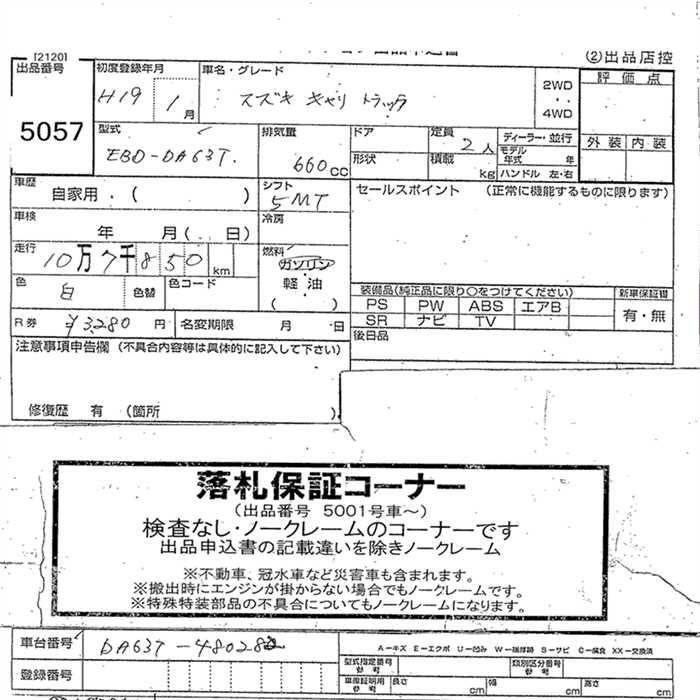 [2120]
②出品店控
出品番号
5057
初度登録年月
H19 1月
車名・グレード
スズキ キャリ トラック
2WD
・・
4WD
評価点
外装 内装
型式
EBD-DA63T
排気量
660cc
ドア
形状
定員
2人
積載
kg
ディーラー・並行
モデル年式 年
ハンドル 左・右
車歴
自家用 ・( )
シフト
5MT
セールスポイント (正常に機能するものに限ります)
車検
年 月( . 日)
冷房
走行
10万7千850km
燃料
ガソリン
軽・油
( ・ )
色
白
色替
色コード
装備品(純正品に限り○をつけてください)
PS PW ABS エアB
SR ナビ TV
新車保証書
有・無
R券
¥3,280円
名変期限 月 ・日
後日品
注意事項申告欄(不具合内容等は具体的に記入して下さい)
修復歴 有 (箇所 )
落札保証コーナー
(出品番号 5001号車~)
検査なし・ノークレームのコーナーです
出品申込書の記載違いを除きノークレーム
※不動車、冠水車など災害車も含まれます。
※搬出時にエンジンが掛からない場合でもノークレームです。
※特殊特装部品の不具合についてもノークレームになります。
車台番号
DA63T-480282
A－キズ E－エクボ U－凹み W－補修跡 S－サビ C－腐食 XX－交換済
登録番号
型式指定番号
参考
類別区分番号
参考
車検証明用
参考
長さ cm
幅 cm
高さ cm